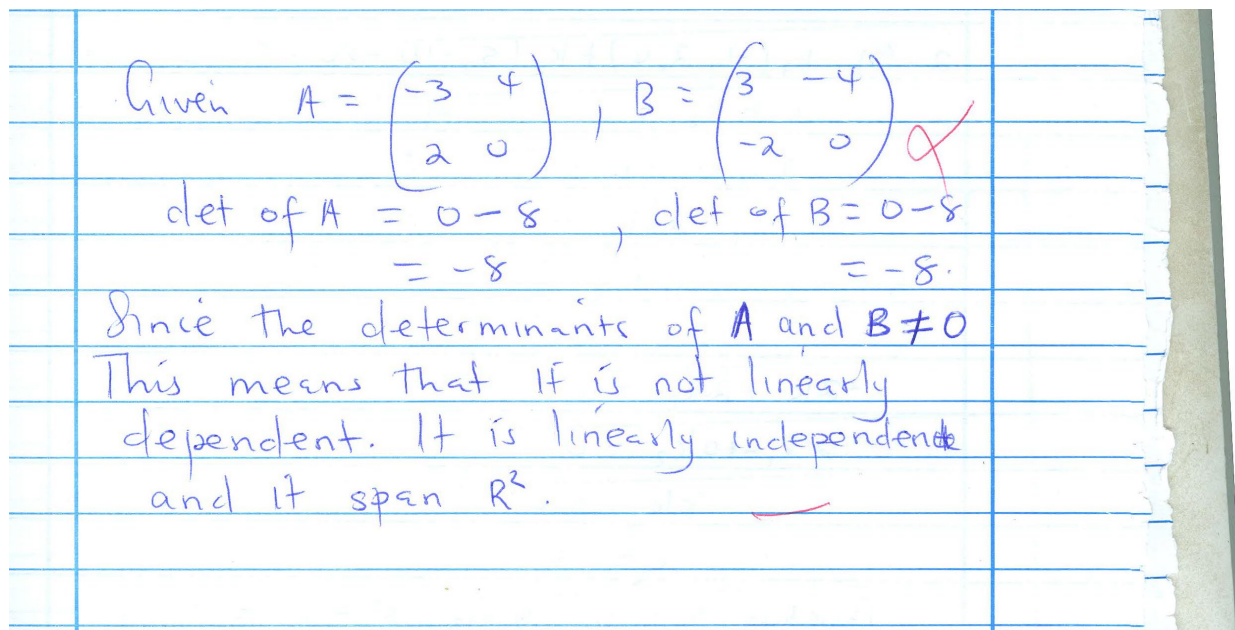 Given A = (-3 4 2 0), B = (3 -4 -2 0)
det of A = 0-8, det of B = 0-8
= -8 = -8.
Since the determinants of A and B ≠ 0
This means that it is not linearly
dependent. It is linearly independent
and it span R².